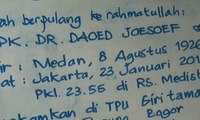 ah berpulang ke rahmatullah:
PK. DR. DAOED JOESOEF
ir : Medan, 8 Agustus 1926
at : Jakarta, 23 Januari 201
Pkl. 23.55 di RS. Medist
akamkan di TPU Giritama
Bogor